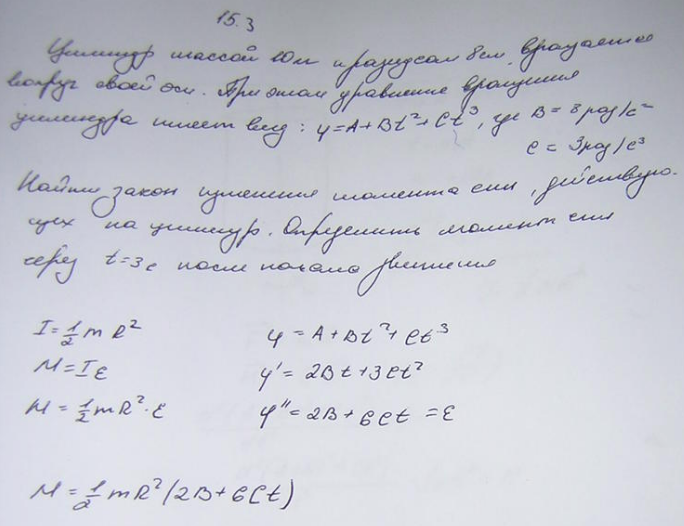 15.3
Цилиндр массой 10 и радиусом 8 см, вращается
вокруг своей оси. При этом уравнение вращения
цилиндра имеет вид: φ = A + Bt² + Ct³, где B = 8 рад/с²
C = 3 рад/с³
Найти закон изменения момента сил, действую-
щих на цилиндр. Определить момент сил
через t = 3 с после начала движения
I = 1/2 m R²
φ = A + Bt² + Ct³
M = Iε
φ' = 2Bt + 3Ct²
M = 1/2 m R² · ε
φ'' = 2B + 6Ct = ε
M = 1/2 m R² (2B + 6Ct)